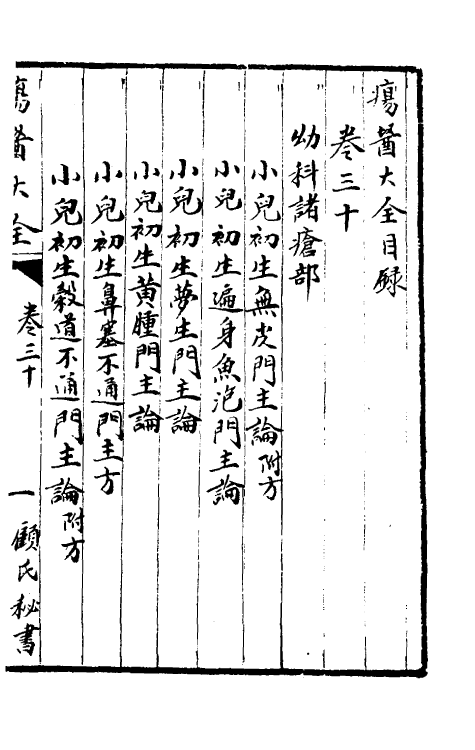 瘍醫大全目錄
卷三十
幼科諸瘡部
小兒初生無皮門主論附方
小兒初生遍身魚泡門主論
小兒初生夢生門主論
小兒初生黃腫門主論
小兒初生鼻塞不通門主方
小兒初生穀道不通門主論附方
瘍醫大全 卷三十 一 顧氏秘書